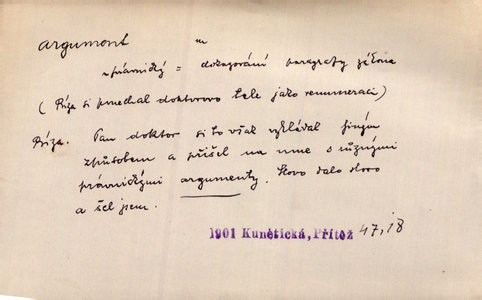 argument m
právnický = dokazování paragrafy zákona
(Říza si ponechal doktorovo tele jako remuneraci)
Říza. Pan doktor si to však vykládal jiným
způsobem a přišel na mne s různými
právnickými argumenty. Slovo dalo slovo
a šel jsem.
1901 Kunětická, Přítěž 47,18